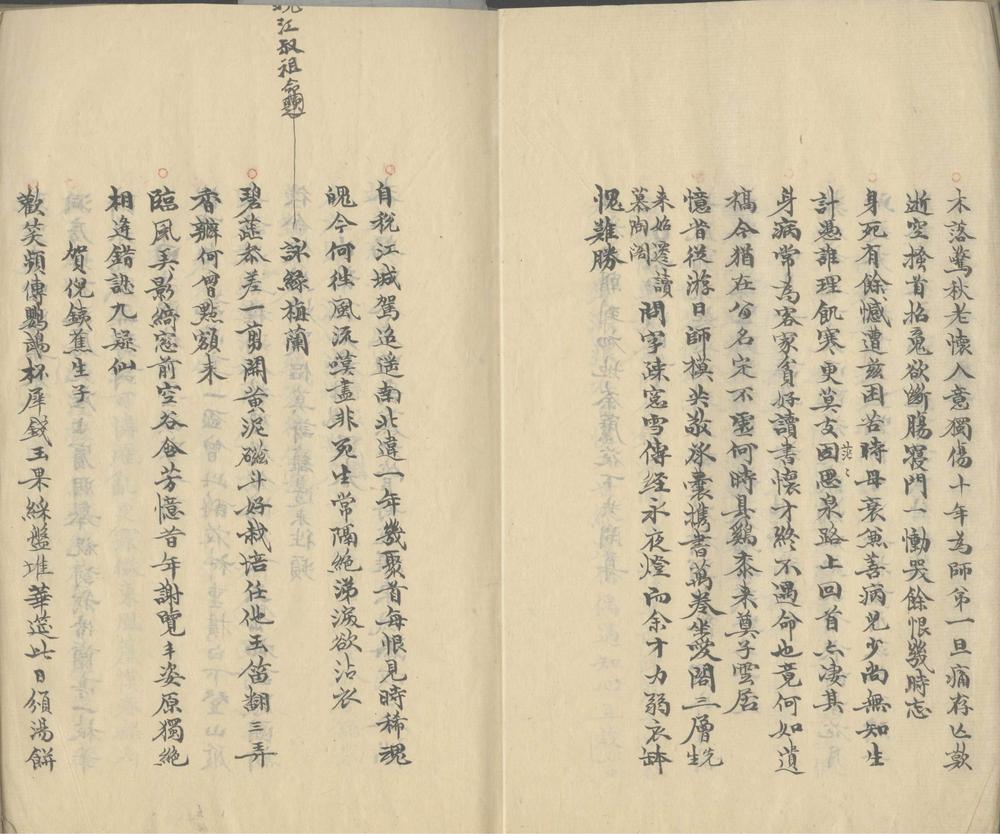 木落驚秋老懷人意獨傷十年為師弟一旦痛存亡歎
逝空搔首招魂欲斷腸寢門一慟哭餘恨幾時忘
身死有餘憾遭茲困苦時母衰兼善病兒少尚無知生
計憑誰理飢寒更莫支因思泉路上回首亦淒其
茫〻
身病常為客家貧好讀書懷才終不遇命也竟何如遺
稿今猶在公名定不虛何時具雞黍來奠子雲居
憶昔從游日師模共敬承囊攜書萬卷坐愛閣三層先生
未始遷讀
慕陶閣問字陳窓雪傳經永夜燈而余才力弱衣缽
愧難勝
江取祖命題
自稅江城駕迢遙南北違年年幾聚首每恨見時稀魂
魄今何往風流嘆盡非死生常隔絕涕淚欲沾衣
詠綠梅蘭
碧蕊參差一剪開黃泥磁斗好栽涪任他玉笛翻三弄
香瓣何曾點額來
臨風弄影綺窓前空谷含芳憶昔年謝覽丰姿原獨絕
相逢錯認九疑仙
賀倪鐵蕉生子
歡笑頻傳鸚鵡杯犀錢玉果綵盤堆華筵此日頒湯餅